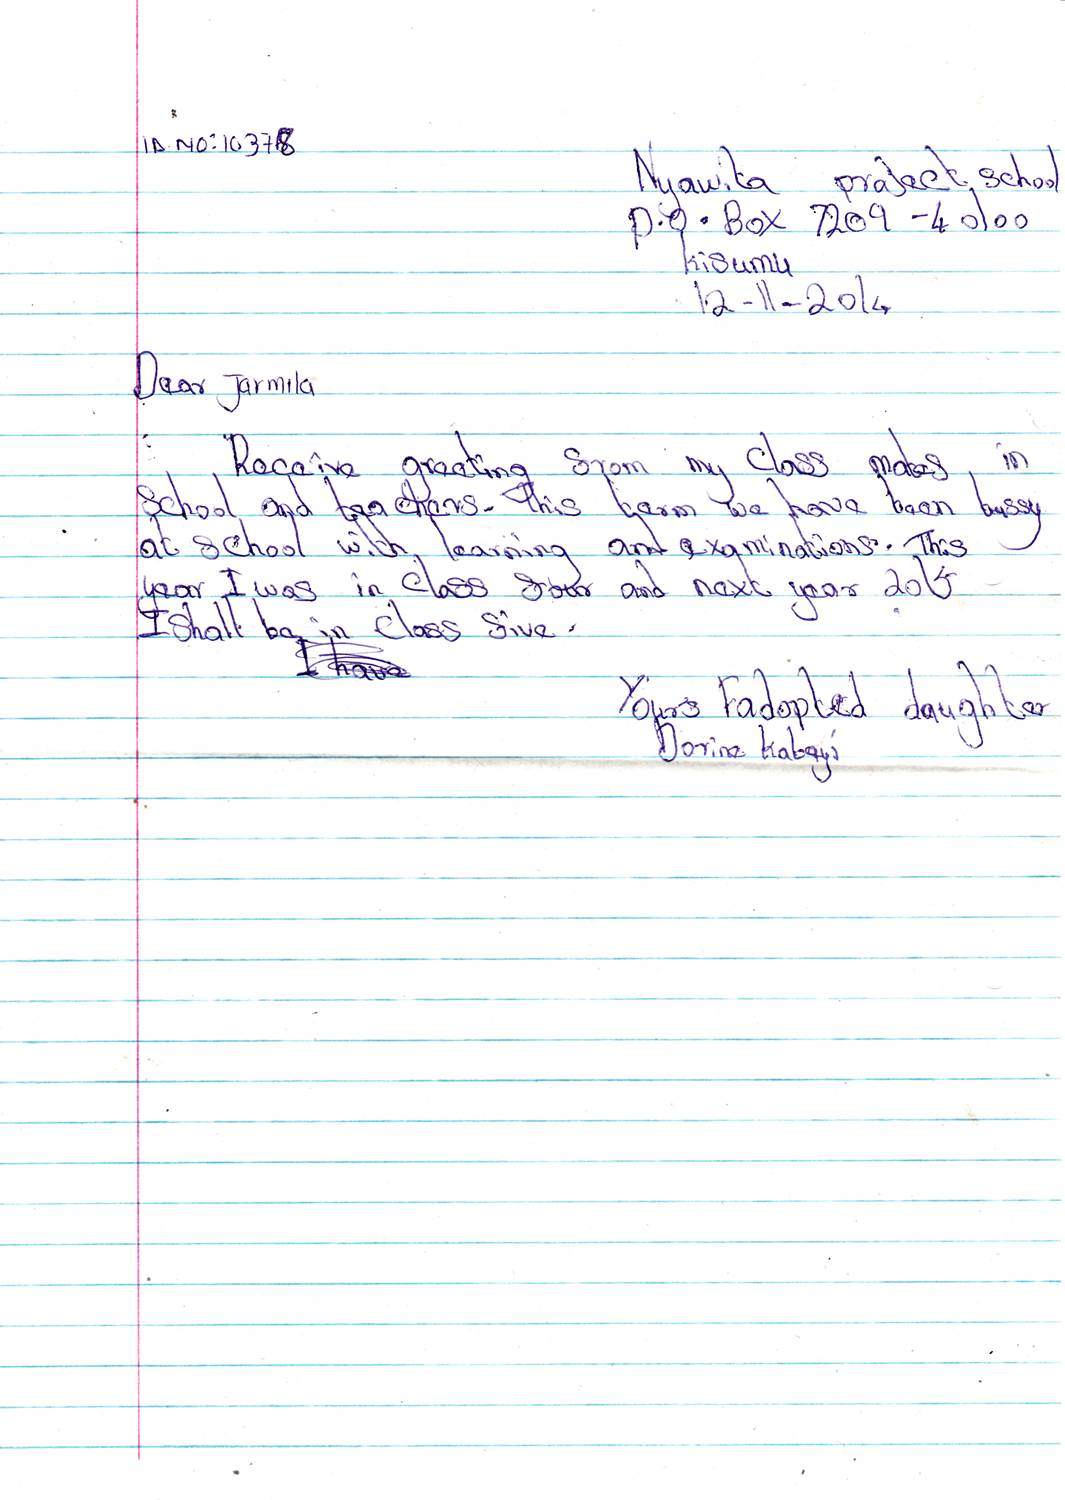 ID.NO:10378
Nyawita project school
P.O. Box 7209 -40100
Kisumu
12-11-2014
Dear Jarmila
Receive greeting from my class mates in
school and teachers. This term we have been bussy
at school with learning and examinations. This
year I was in class four and next year 2015
I shall be in class five.
I have
Yours Fadopted daughter
Dorine Kabayi